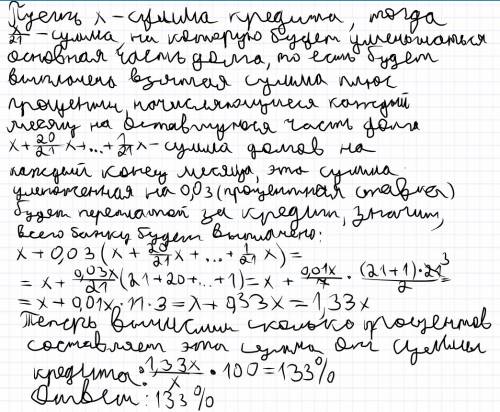 Пусть x - сумма кредита, тогда
x/21 - сумма, на которую будет уменьшаться
основная часть долга, то есть будет
выплачена взятая сумма плюс
проценты, начисляющиеся каждый
месяц на оставшуюся часть долга
x + 20/21 x + ... + 1/21 x - сумма долгов на
каждый конец месяца, эта сумма
умноженная на 0,03 (процентная ставка)
будет переплатой за кредит, значит,
всего банку будет выплачено:
x + 0,03 (x + 20/21 x + ... + 1/21 x) =
= x + 0,03x/21 (21 + 20 + ... + 1) = x + 0,01x/7 · (21+1)·21 3/2 =
= x + 0,01x · 11 · 3 = x + 0,33x = 1,33x
Теперь вычислим сколько процентов
составляет эта сумма от суммы
кредита: 1,33x/x · 100 = 133%
Ответ: 133%